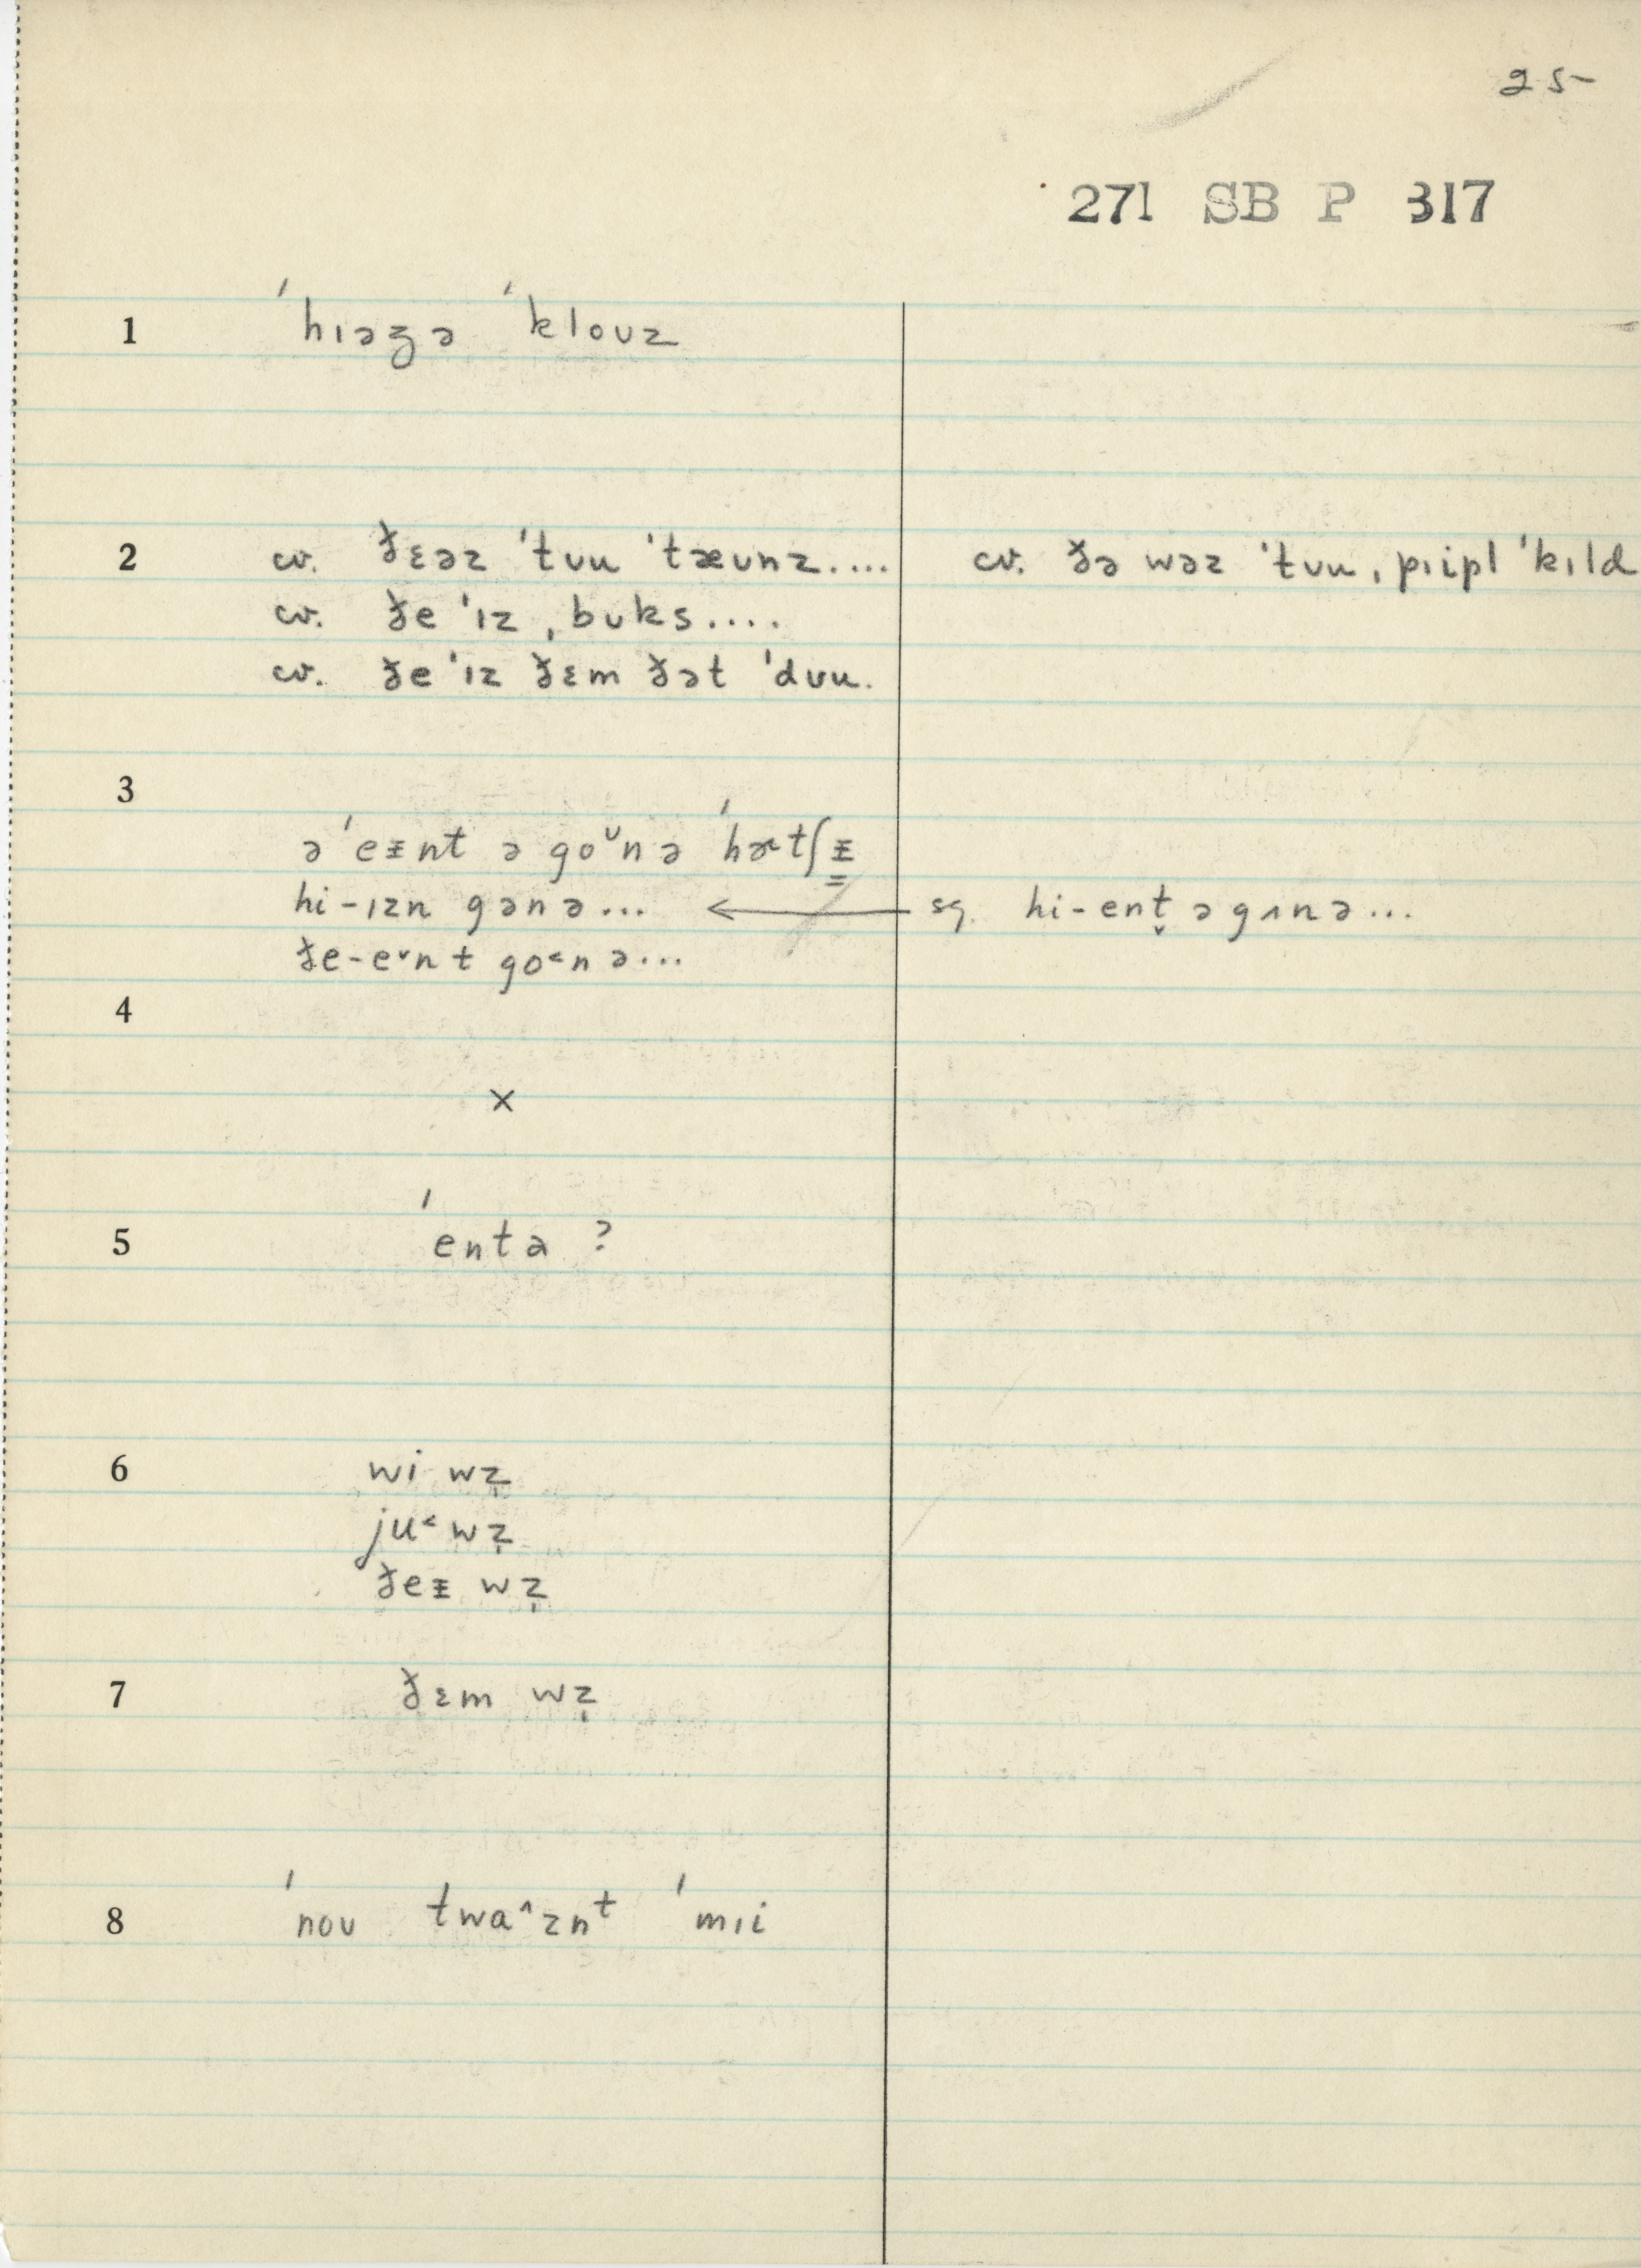 25
271 SB P 317
1 ˈhɪəʒə ˈkloʊz
2 cv. ðɛəz ˈtʊu ˈtæʊnz.... cv. ðə wəz ˈtʊu ˌpɪipl ˈkɪld
cv. ðe ˈɪz ˌbuks....
cv. ðe ˈɪz ðɛm ðət ˈdʊu.
3
ə ˈeᵻnt ə goᵛnə ˈhætʃᵻ
hi-ɪzn gənə... ← sg. hi-ent̬ ə gʌnə...
ðe-e˅nt go˂nə...
4
×
5 ˈentə ?
6 wi wz̩
ju˂ wz̩
ðeᵻ wz̩
7 ðɛm wz̩
8 ˈnoʊ twa˄znᵗ ˈmɪi